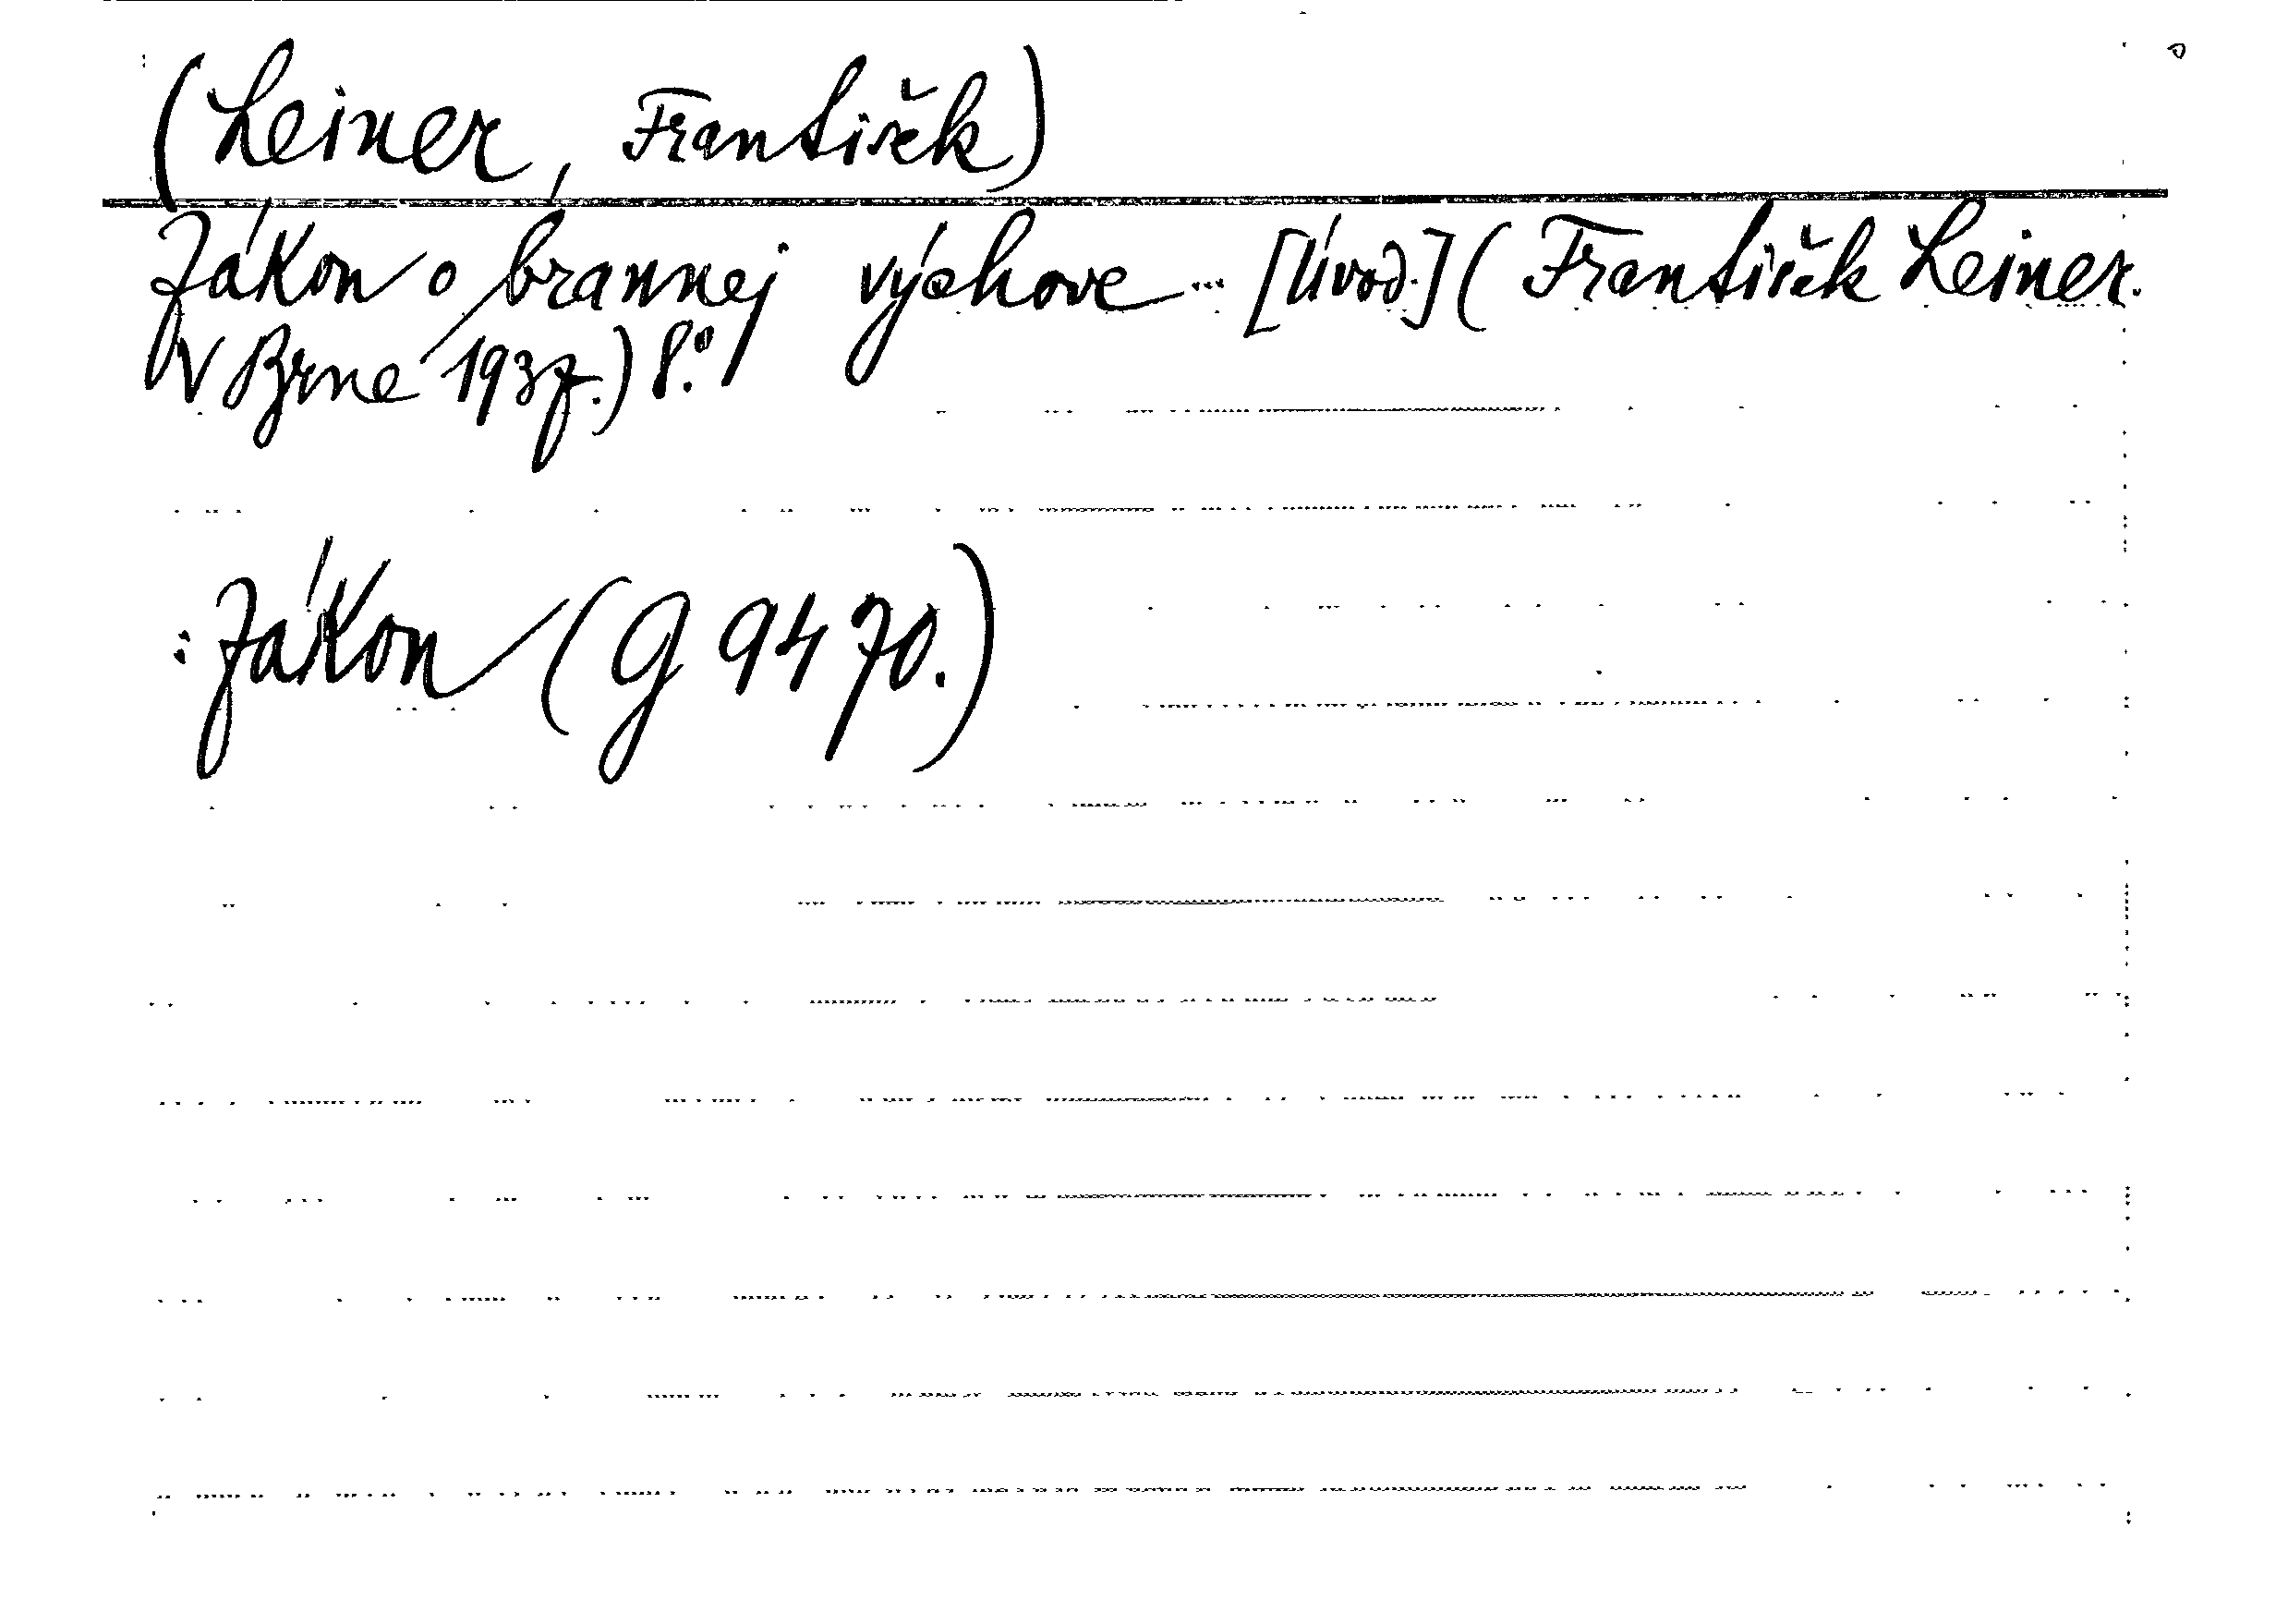 (Leiner, František)
Zákon o brannej výchove ... [Úvod.] (František Leiner.
V Brne 1937.) 8.°
: Zákon (G 9470.)